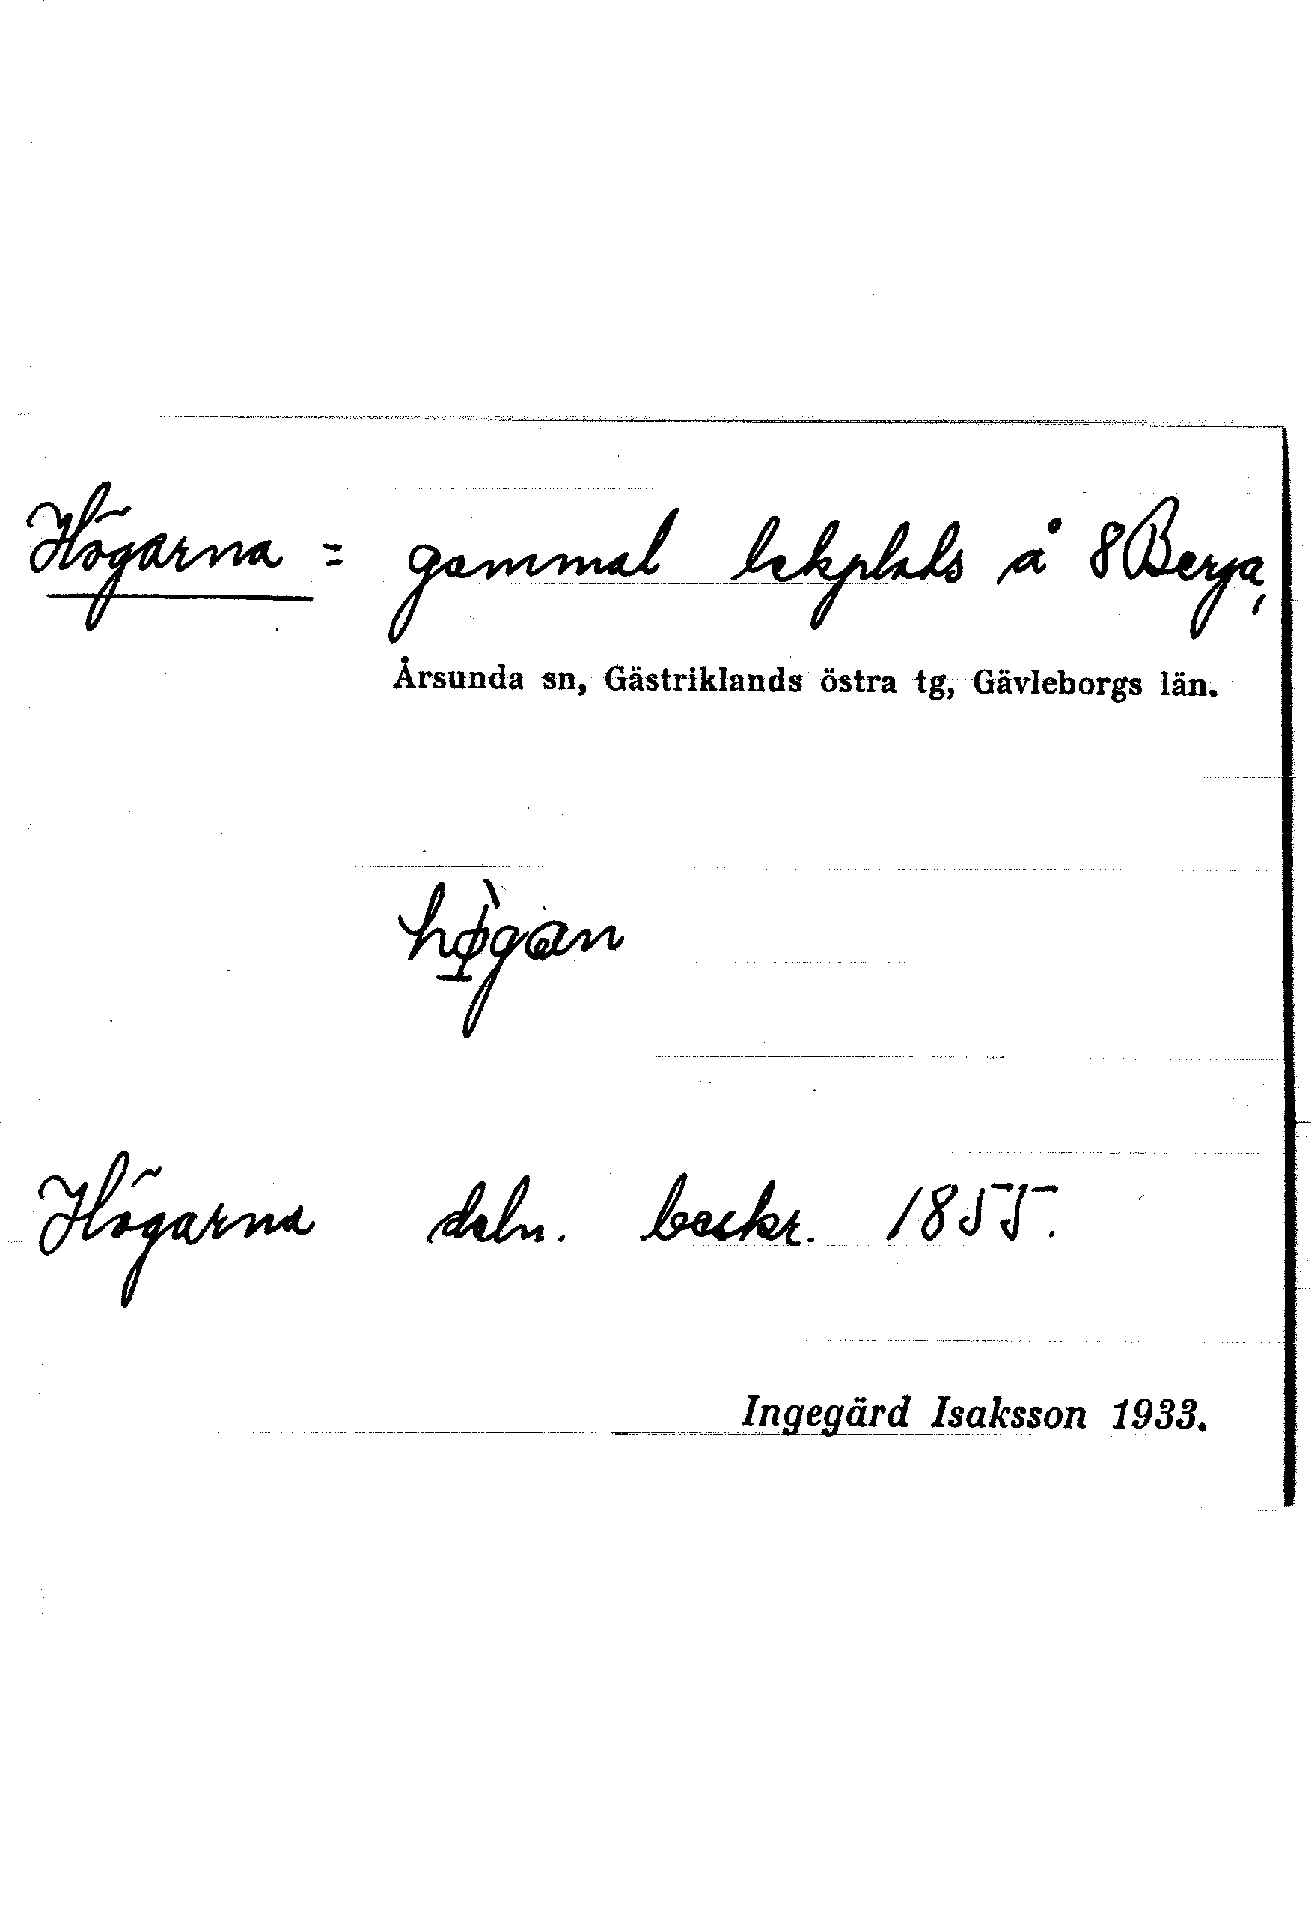 Högarna = gammal lekplats å 8 Berga,
Årsunda sn, Gästriklands östra tg, Gävleborgs län.
hø̱̀gan
Högarna deln. beskr. 1855.
Ingegärd Isaksson 1933.